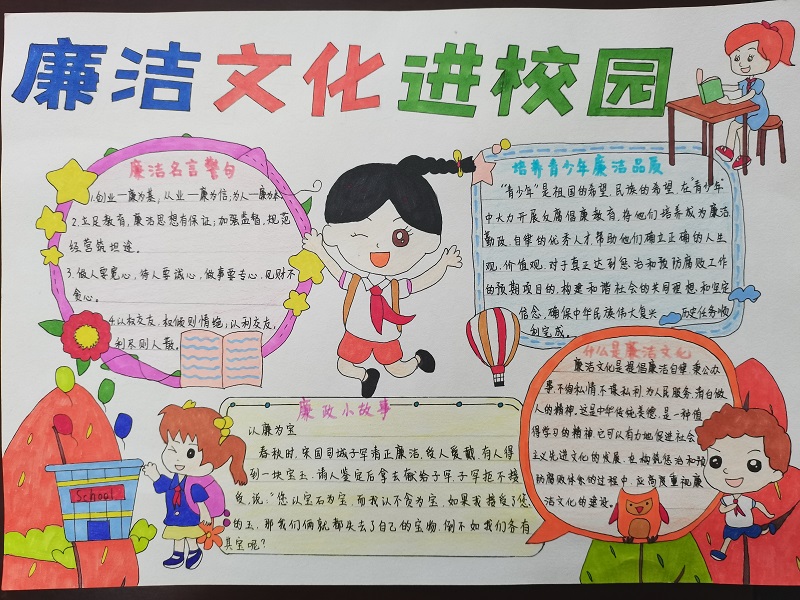 廉洁文化进校园
廉洁名言警句
1.创业一廉为基,从业一廉为信,为人一廉为本
2.立足教育,廉洁思想有保证;加强监督,规范
经营筑坦途。
3.做人要宽心,待人要诚心,做事要专心,见财不
贪心。
4.以权交友,权倾则情绝;以利交友,
利尽则人散。
培养青少年廉洁品质
"青少年"是祖国的希望、民族的希望,在"青少年"
中大力开展反腐倡廉教育,将他们培养成为廉洁
勤政,自律的优秀人才,帮助他们确立正确的人生
观,价值观,对于真正达到惩治和预防腐败工作
的预期项目的,构建和谐社会的共同理想,和坚定
信念,确保中华民族伟大复兴
历史任务顺
利完成。
什么是廉洁文化
廉洁文化是提倡廉洁自律,秉公办
事,不徇私情,不谋私利,为人民服务,清白做
人的精神,这是中华传统美德,是一种值
得学习的精神,它可以有力地促进社会
主义先进文化的发展,在构筑惩治和预
防腐败体系的过程中,应高度重视廉
洁文化的建设。
廉政小故事
以廉为宝
春秋时,宋国司城子罕清正廉洁,受人爱戴,有人得
到一块宝玉,请人鉴定后拿去献给子罕,子罕拒不接
受,说:"您以宝石为宝,而我以不贪为宝,如果我接受了您
的玉,那我们俩就都失去了自己的宝物,倒不如我们各有
其宝呢?
School